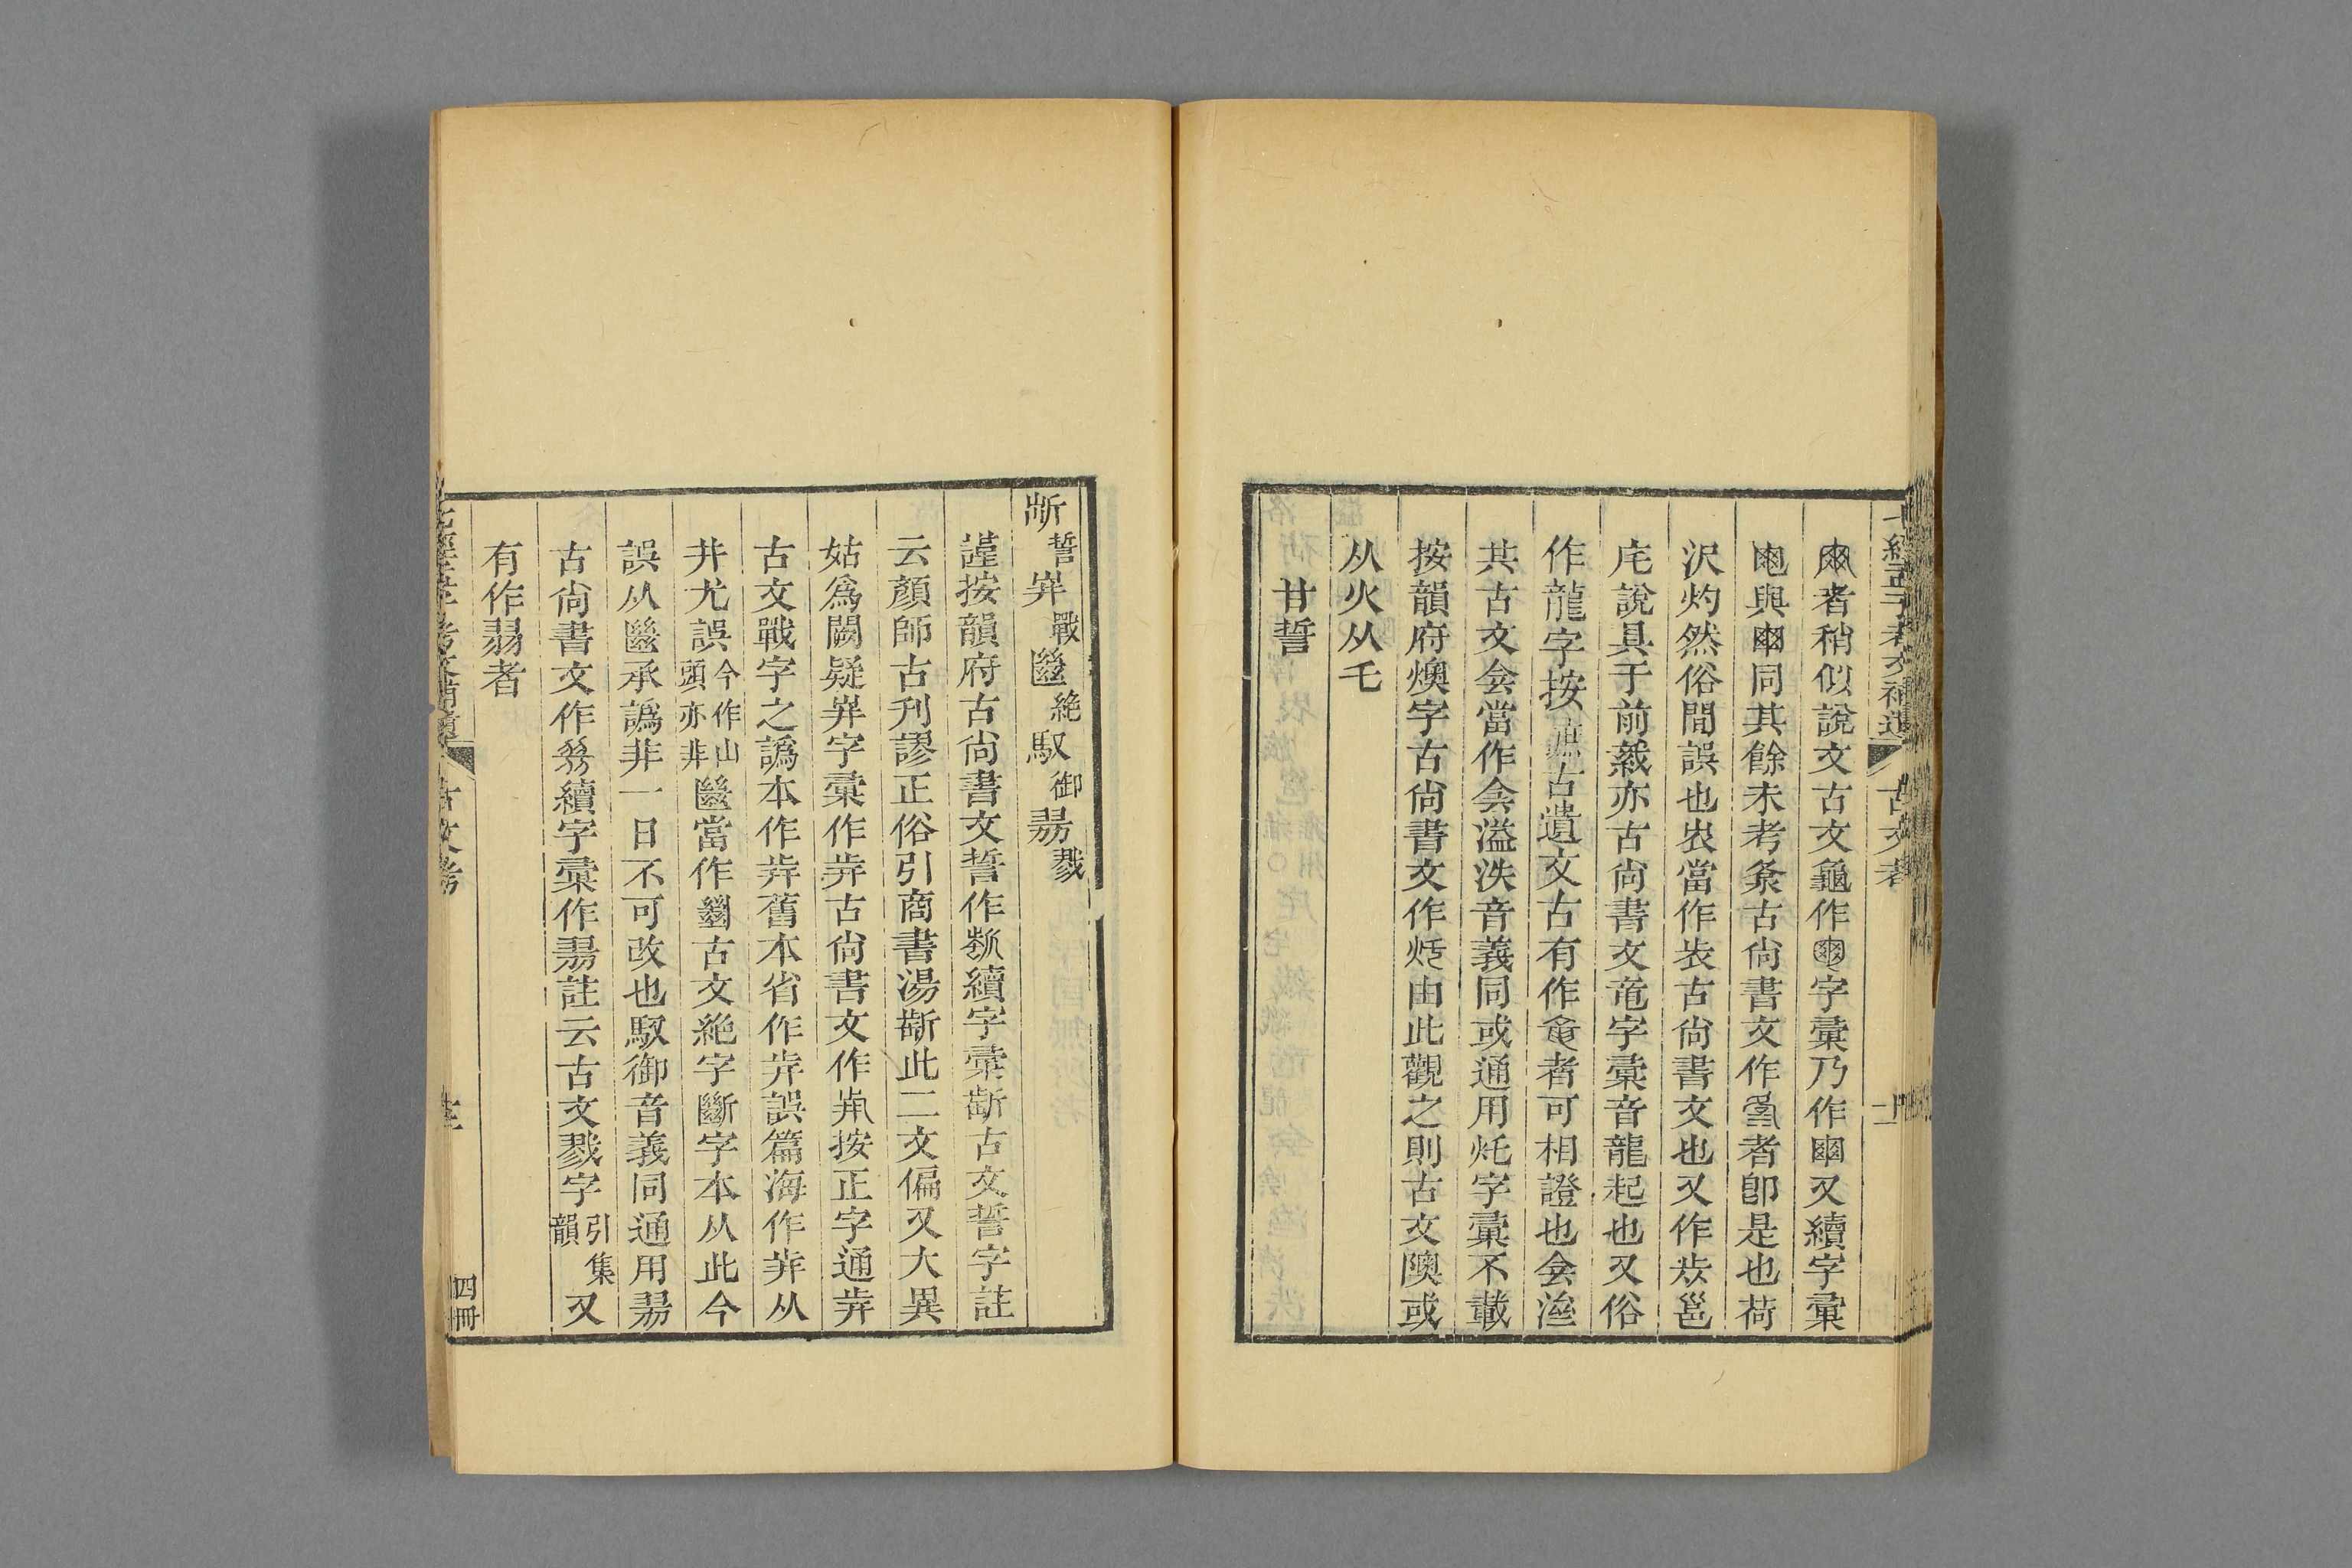 七經孟子考文補遺 古文考
者稍似說文古文龜作字彙乃作又續字彙
與同其餘未考条古尙書文作者卽是也荷
沢灼然俗間誤也當作古尙書文也又作邕
㡯說具于前亦古尙書文竜字彙音龍起也又俗
作龍字按古遺文古有作者可相證也㑹
共古文㑹當作溢泆音義同或通用字彙不載
按韻府燠字古尙書文作由此觀之則古文隩或
从火从乇
甘誓
誓 戰 絕 馭御 戮
謹按韻府古尙書文誓作續字彙古文誓字註
云顏師古刋謬正俗引商書湯此二文偏又大異
姑爲闕疑字彙作古尙書文作按正字通
古文戰字之譌本作舊本省作誤篇海作从
井尤誤今作山頭亦非當作古文絕字斷字本从此今
誤从承譌非一日不可攺也馭御音義同通用
古尙書文作續字彙作註云古文戮字引集韻又
有作者
七經孟子考文補遺 古文考 四冊